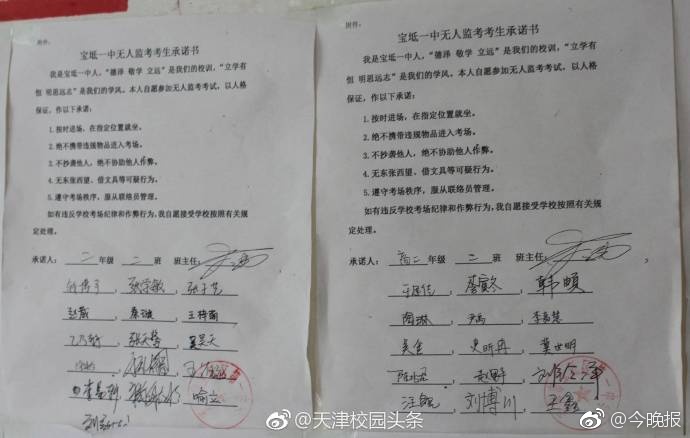 附件:
宝坻一中无人监考考生承诺书
我是宝坻一中人,“德泽 敬学 立远”是我们的校训,“立学有
恒 明思远志”是我们的学风。本人自愿参加无人监考考试,以人格
保证,作以下承诺:
1.按时进场,在指定位置就坐。
2.绝不携带违规物品进入考场。
3.不抄袭他人,绝不协助他人作弊。
4.无东张西望、借文具等可疑行为。
5.遵守考场秩序,服从联络员管理。
如有违反学校考场纪律和作弊行为,我自愿接受学校按照有关规
定处理。
承诺人: 二 年级 二 班 班主任:
张学敏
赵薇 王梓菊
张天馨 吴昊天
喻立
附件:
宝坻一中无人监考考生承诺书
我是宝坻一中人,“德泽 敬学 立远”是我们的校训,“立学有
恒 明思远志”是我们的学风。本人自愿参加无人监考考试,以人格
保证,作以下承诺:
1.按时进场,在指定位置就坐。
2.绝不携带违规物品进入考场。
3.不抄袭他人,绝不协助他人作弊。
4.无东张西望、借文具等可疑行为。
5.遵守考场秩序,服从联络员管理。
如有违反学校考场纪律和作弊行为,我自愿接受学校按照有关规
定处理。
承诺人: 高二 年级 二 班 班主任:
韩顺
陶琳 尹禹 李嘉慧
吴金 史昕冉 冀世明
汪毓 刘博川 王鑫
@天津校园头条
@今晚报